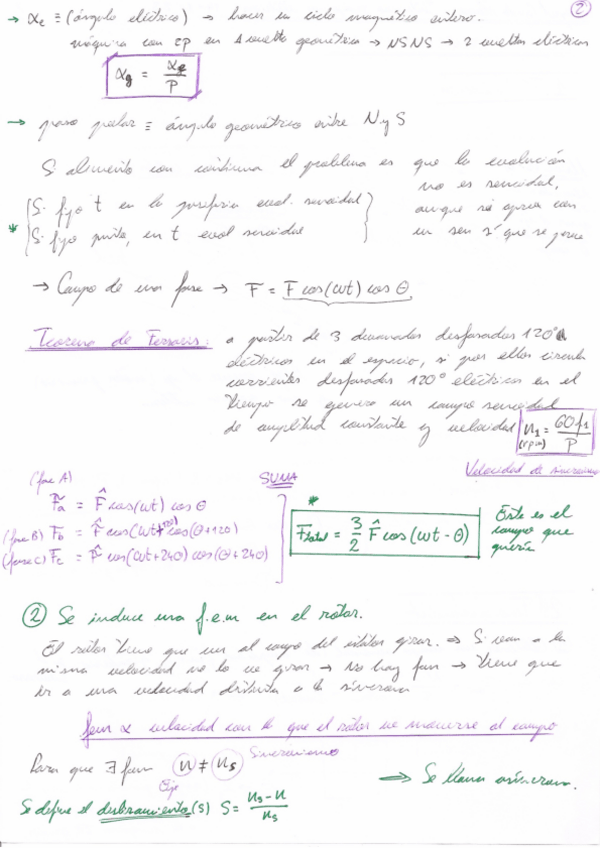 ②
→ αe ≡ (ángulo eléctrico) → hacer un ciclo magnético entero.
máquina con 2P en 1 vuelta geométrica → NSNS → 2 vueltas eléctricas
αg = αe / P
→ paso polar ≡ ángulo geométrico entre N y S
Si alimento con continua el problema es que la evolución
no es senoidal,
Si fijo t en la periferia evol. senoidal
aunque
con
* Si fijo punto, en t evol senoidal
un sen sí que se
→ Campo de una fase → F = F cos(ωt) cos θ
Teorema de Ferraris: a partir de 3 devanados desfasados 120°
eléctricos en el espacio, si por ellos circula
corrientes desfasadas 120° eléctricos en el
tiempo se genera un campo senoidal
de amplitud constante y velocidad n1 = 60f1 / P
(rpm)
Velocidad de sincronismo
(fase A)
SUMA
Fa = F̂ cos(ωt) cos θ
(fase B) Fb = F̂ cos(ωt+120) cos(θ+120)
(fase C) Fc = F̂ cos(ωt+240) cos(θ+240)
*
Ftotal = 3/2 F̂ cos(ωt - θ)
Este es el
campo que
quería
② Se induce una f.e.m en el rotor.
El rotor tiene que ver al campo del estator girar. ⇒ Si van a la
misma velocidad no lo ve girar → No hay fem → Tiene que
ir a una velocidad distinta a la síncrona
fem α velocidad con la que el rotor ve moverse al campo
Para que ∃ fem n ≠ ns Sincronismo
Eje
⇒ Se llama asíncrona.
Se define el deslizamiento (S) S = ns - n / ns